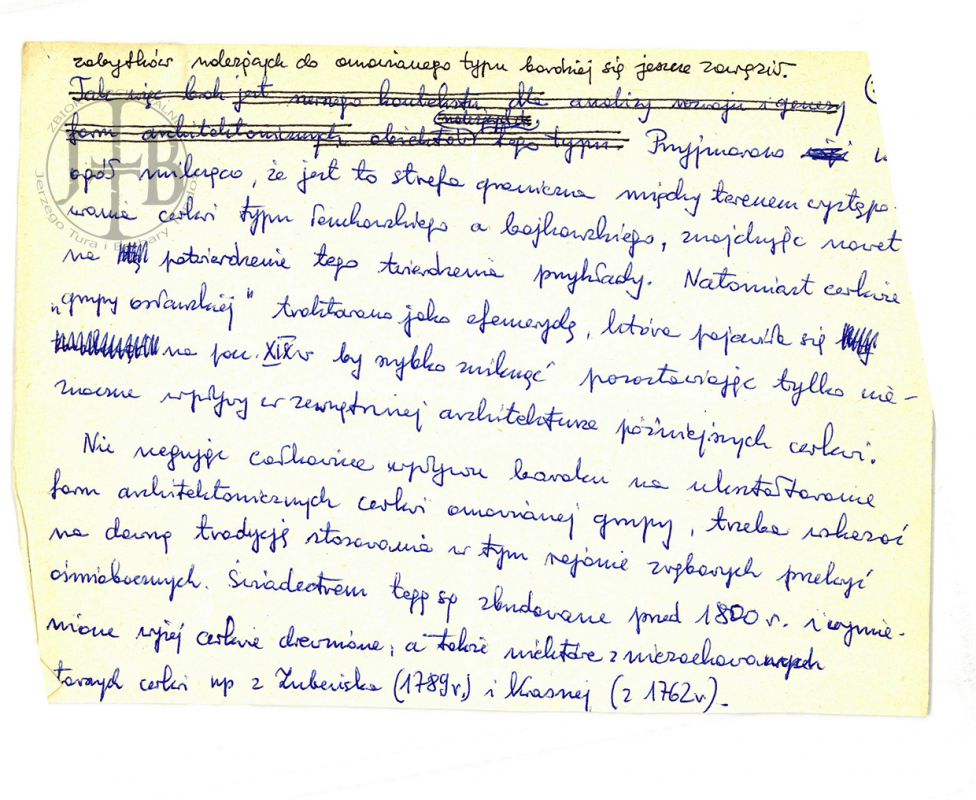 zabytków należących do omawianego typu bardziej się jeszcze zawęził.
Tak więc brak jest szerszego kontekstu, dla analizy rozwoju i genezy
należących
form architektonicznych obiektów tego typu. Przyjmowano
opór milcząco, że jest to strefa graniczna między terenem występo-
wania cerkwi typu łemkowskiego a bojkowskiego, znajdując nawet
na potwierdzenie tego twierdzenia przykłady. Natomiast cerkwie
„grupy osławskiej" traktowano jako efemerydę, która pojawiła się
na pocz. XIX w by szybko zniknąć pozostawiając tylko nie-
znaczne wpływy w zewnętrznej architekturze późniejszych cerkwi.
Nie negując całkowicie wpływu baroku na ukształtowanie
form architektonicznych cerkwi omawianej grupy, trzeba wskazać
na dawną tradycję stosowania w tym rejonie zrębowych przekryć
ośmiobocznych. Świadectwem tego są zbudowane przed 1800 r. i wymie-
nione wyżej cerkwie drewniane, a także niektóre z niezachowanych
cerkwi np z Zubeńska (1789r.) i Krasnej (z 1762r).
ZBIORY
Jerzego Tura i Barbary
JTB